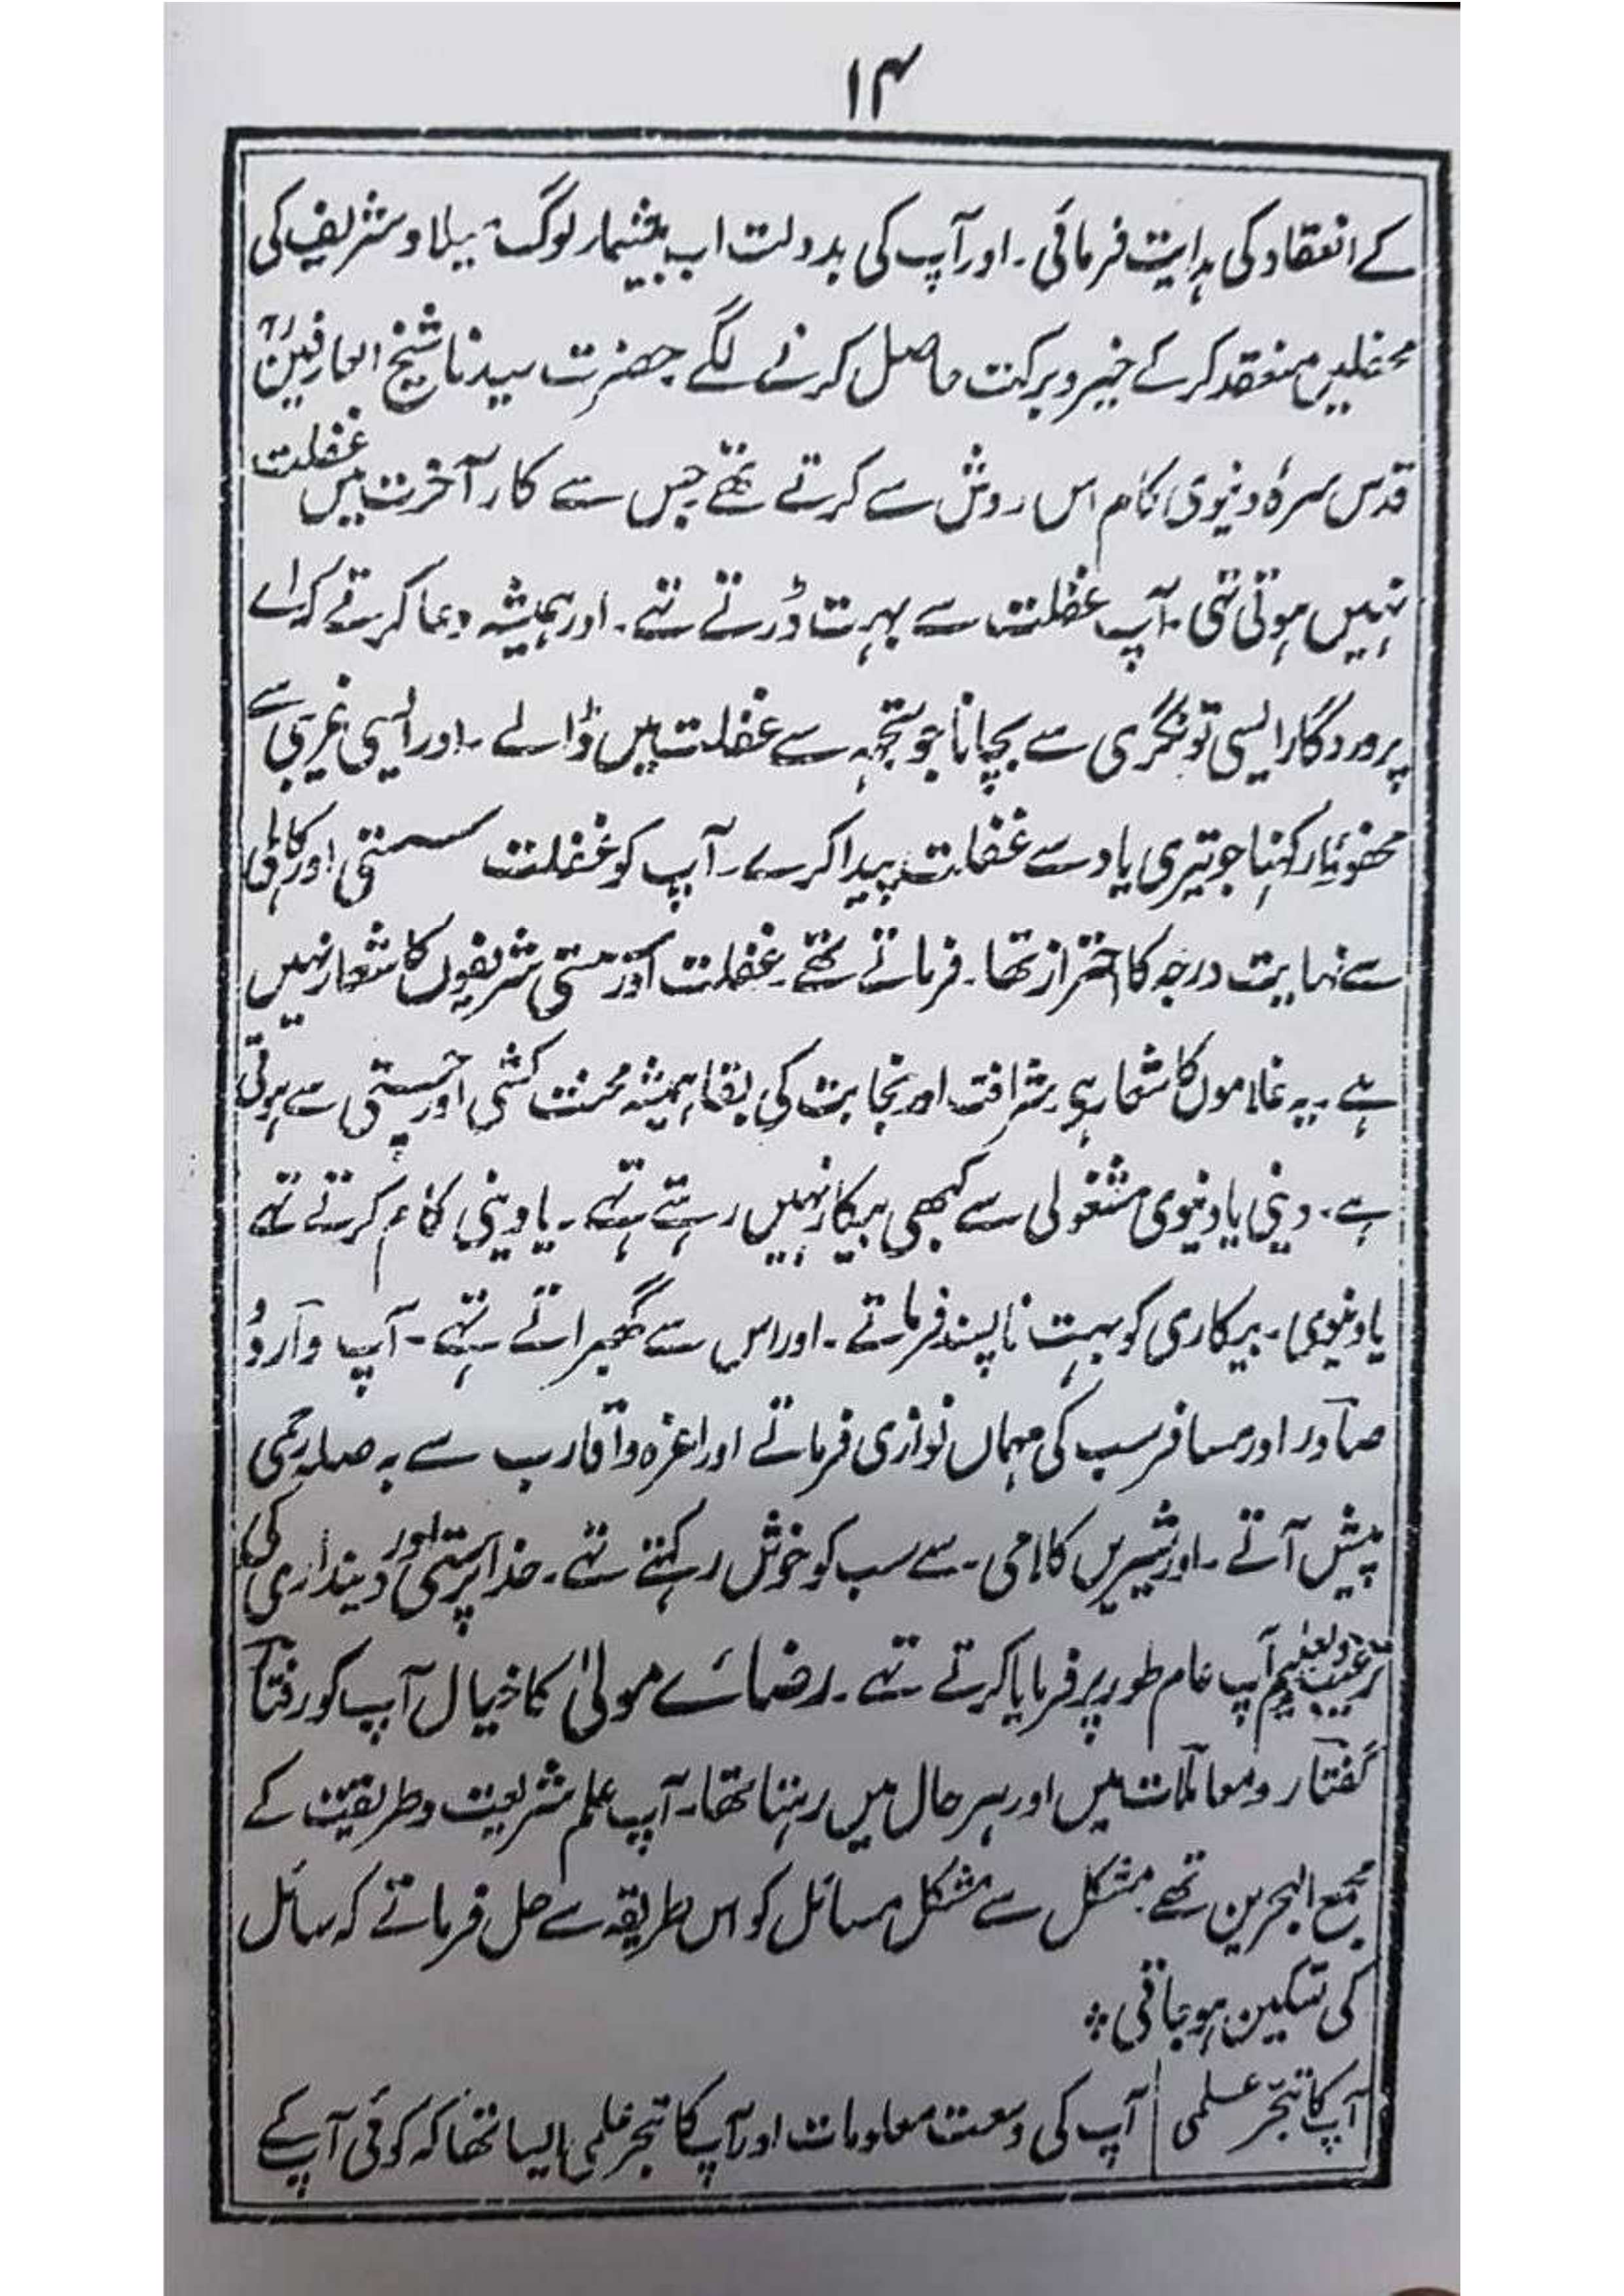 ۱۴
کے انعقاد کی ہدایت فرمائی ۔ اور آپ کی بدولت اب بیشمار لوگ میلاد شریف کی
محفلیں منعقد کر کے خیر و برکت حاصل کرنے لگے حضرت سیدنا شیخ العارفینؒ
قدس سرہٗ دنیوی کام اس روش سے کرتے تھے جس سے کار آخرت میں غفلت
نہیں ہوتی تہی ۔ آپ غفلت سے بہت ڈرتے تہے ۔ اور ہمیشہ دعا کرتے کہ اے
پروردگار ایسی تونگری سے بچانا جو تجہہ سے غفلت میں ڈالے ۔ اور ایسی غریبی سے
محفوظ رکہنا جو تیری یاد سے غفلت پیدا کرے ۔ آپ کو غفلت سستی اور کاہلی
سے نہایت درجہ کا احتراز تھا ۔ فرماتے تھے ۔ غفلت اور سستی شریفوں کا شعار نہیں
ہے ۔ یہ غلاموں کا شعار ہی شرافت اور نجابت کی بقا ہمیشہ محنت کشی اور چستی سے ہوتی
ہے ۔ دینی یا دنیوی مشغولی سے کبھی بیکار نہیں رہتے تہے ۔ یا دینی کام کرتے تہے
یا دنیوی ۔ بیکاری کو بہت ناپسند فرماتے ۔ اور اس سے گھبراتے تہے ۔ آپ وارد و
صادر اور مسافر سب کی مہماں نوازی فرماتے اور اعزہ و اقارب سے بہ صلہ رحمی
پیش آتے ۔ اور شیریں کلامی ۔ سے سب کو خوش رکہتے تہے ۔ خدا پرستی اور دینداری کی
ترغیب و تعلیم آپ عام طور پر فرمایا کرتے تہے ۔ رضائے مولیٰ کا خیال آپ کو رفتار
گفتار و معاملات میں اور ہر حال میں رہتا تھا ۔ آپ علم شریعت و طریقت کے
مجمع البحرین تھے مشکل سے مشکل مسائل کو اس طریقہ سے حل فرماتے کہ سائل
کی تسکین ہو جاتی ؞
آپ کا تبحّر علمی | آپ کی وسعت معلومات اور آپ کا تبحر علمی ایسا تھا کہ کوئی آپ کے